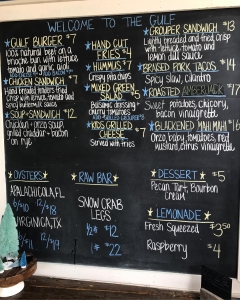 WELCOME TO THE GULF
GULF BURGER $7
100% natural beef on a
brioche bun with lettuce
tomato and garlic aioli
CHICKEN SANDWICH $7
Hand breaded tenders fried
crisp with lettuce tomato and
spicy buttermilk sauce
SOUP + SANDWICH $12
tomato soup
grilled cheddar + bacon
on rye
HAND CUT
FRIES $4
HUMMUS $7
Crispy pita chips
MIXED GREEN
SALAD $5
Balsamic dressing
cherry tomatoes
KIDS GRILLED
CHEESE $7
Served with fries
GROUPER SANDWICH $13
Lightly breaded and fried crisp
with lettuce, tomato and
lemon dill sauce
BRAISED PORK TACOS $14
Spicy slaw, cilantro
ROASTED AMBERJACK $17
Sweet potatoes, chicory,
bacon vinaigrette
BLACKENED MAHI MAHI $16
Orzo, baby tomatoes, red
mustard, citrus vinaigrette
OYSTERS
APALACHICOLA, FL
6/$10 12/$18
VIRGINICA, TX
6/$11 12/$19
RAW BAR
SNOW CRAB
LEGS
1/2# $12
1# $22
DESSERT $5
Pecan Tart, Bourbon
Cream
LEMONADE
Fresh Squeezed $3.50
Raspberry $4